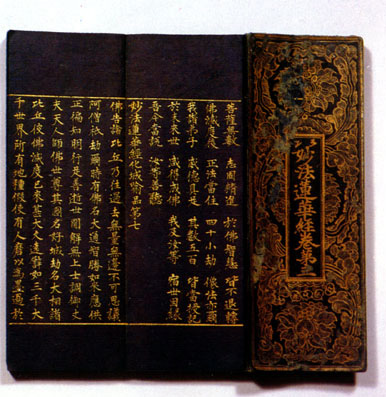 妙法蓮華經卷第三
菩薩無數　志固精進　於佛智慧　皆不退轉
佛滅度後　正法當住　四十小劫　像法亦爾
我諸弟子　威德具足　其數五百　皆當授記
於未來世　咸得成佛　我及汝等　宿世因緣
吾今當說　汝等善聽
妙法蓮華經化城喻品第七
佛告諸比丘乃往過去無量無邊不可思議
阿僧祇劫爾時有佛名大通智勝如來應供
正徧知明行足善逝世間解無上士調御丈
夫天人師佛世尊其國名好城劫名大相諸
比丘彼佛滅度已來甚大久遠譬如三千大
千世界所有地種假使有人磨以為墨過於